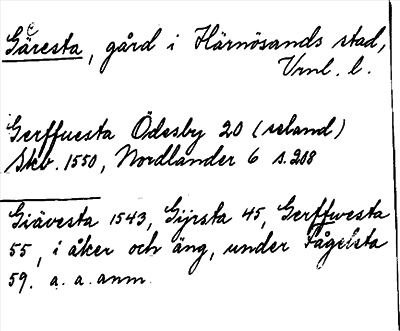 Gäresta, gård i Härnösands stad,
Vrnl. l.
Gerffuesta Ödesby 20 (seland)
Skb. 1550, Nordlander 6 s. 208
Giävesta 1543, Gijrsta 45, Gerffwesta
55, i åker och äng, under Fågelsta
59. a. a. anm.